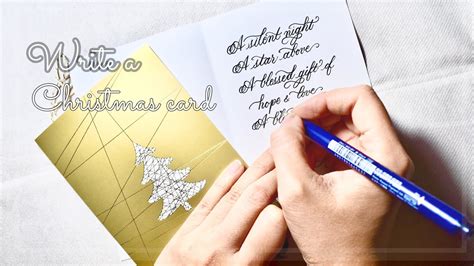 Write a
Christmas card
A silent night
A star above
A blessed gift of
hope & love
A bl